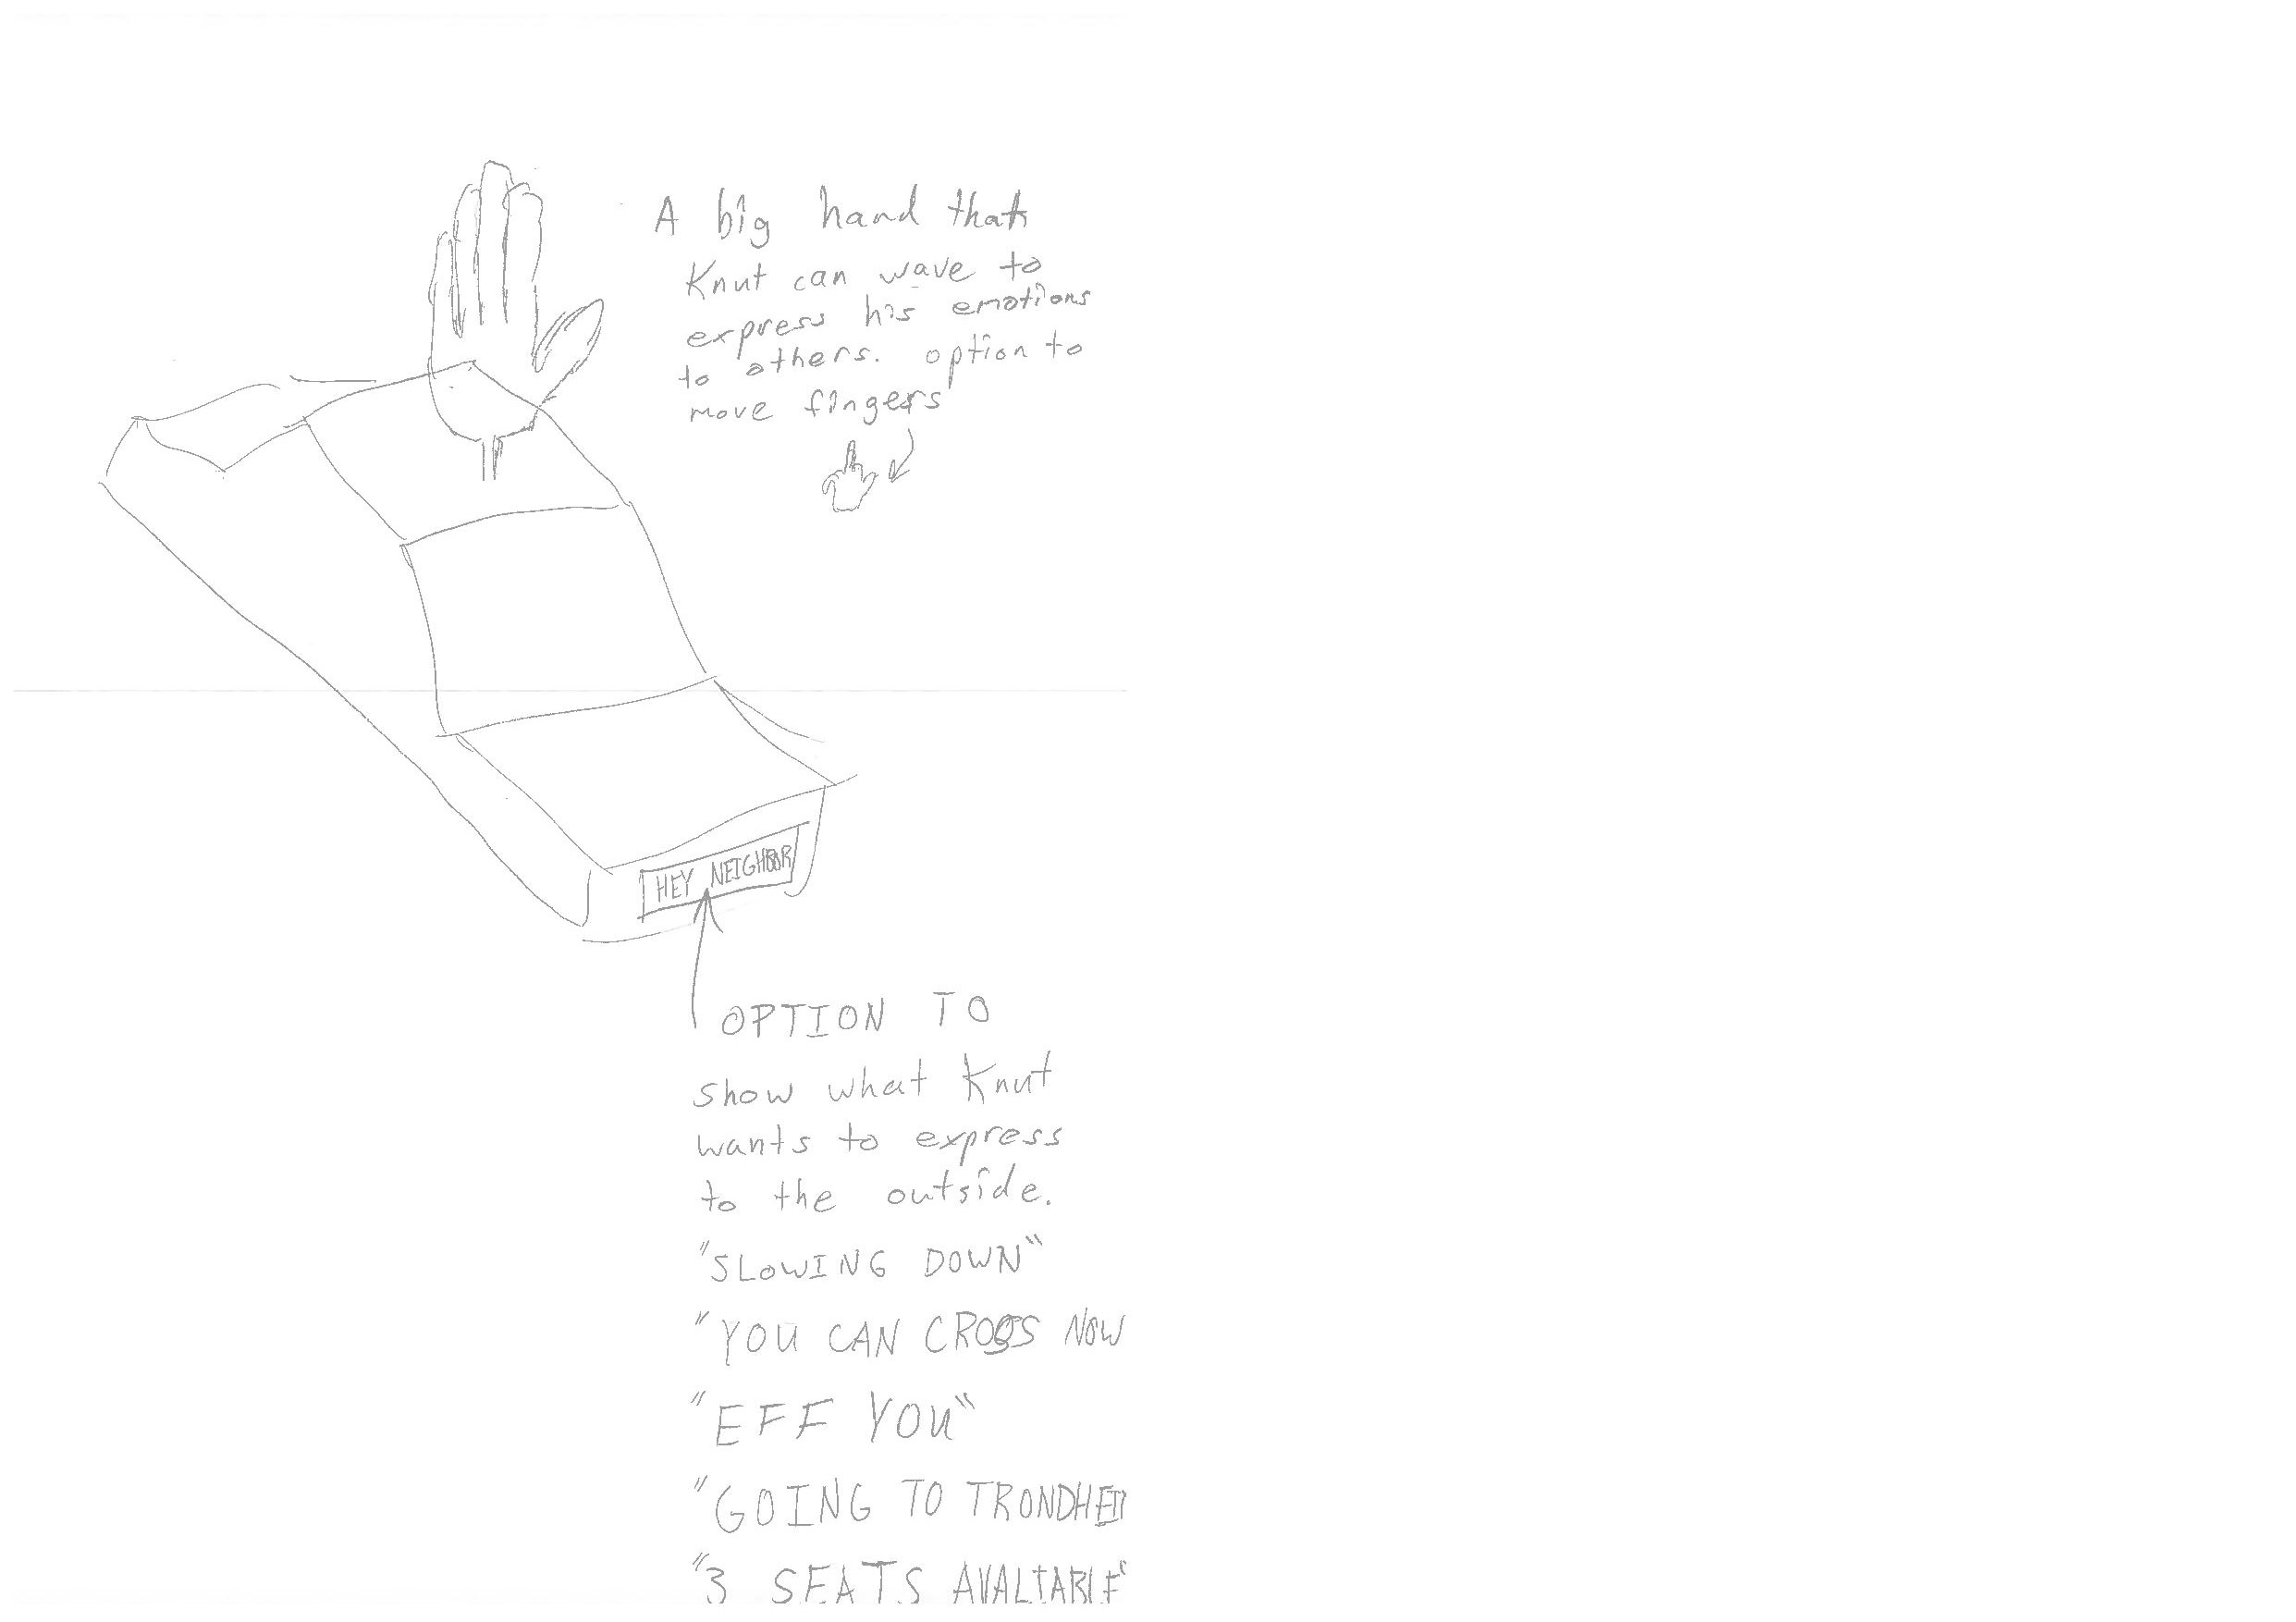 A big hand that
Knut can wave to
express his emotions
to others. option to
move fingers
HEY NEIGHBOR
OPTION TO
show what Knut
wants to express
to the outside.
"SLOWING DOWN"
"YOU CAN CROSS NOW
"EFF YOU"
"GOING TO TRONDHEI
"3 SEATS AVALIABLE"